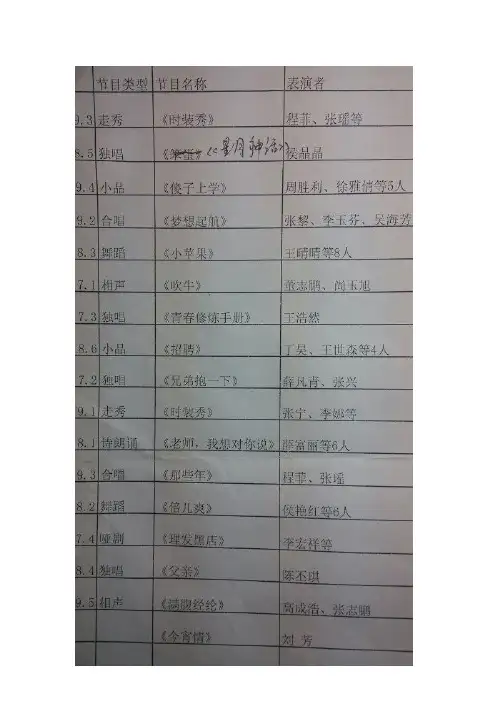 节目类型 节目名称 表演者
9.3 走秀 《时装秀》 程菲、张瑶等
8.5 独唱 《星月神话》 侯晶晶
9.4 小品 《傻子上学》 周胜利、徐雅倩等5人
9.2 合唱 《梦想起航》 张黎、李玉芬、吴海芳
8.3 舞蹈 《小苹果》 王晴晴等8人
7.1 相声 《吹牛》 董志鹏、尚玉旭
7.3 独唱 《青春修炼手册》 王浩然
8.6 小品 《招聘》 丁昊、王世森等4人
7.2 独唱 《兄弟抱一下》 薛凡青、张兴
9.1 走秀 《时装秀》 张宁、李娜等
8.1 诗朗诵 《老师，我想对你说》 薛富丽等6人
9.3 合唱 《那些年》 程菲、张瑶
8.2 舞蹈 《倍儿爽》 侯艳红等6人
7.4 哑剧 《理发黑店》 李宏祥等
8.4 独唱 《父亲》 陈丕琪
9.5 相声 《满腹经纶》 高成浩、张志鹏
《今宵情》 刘 芳